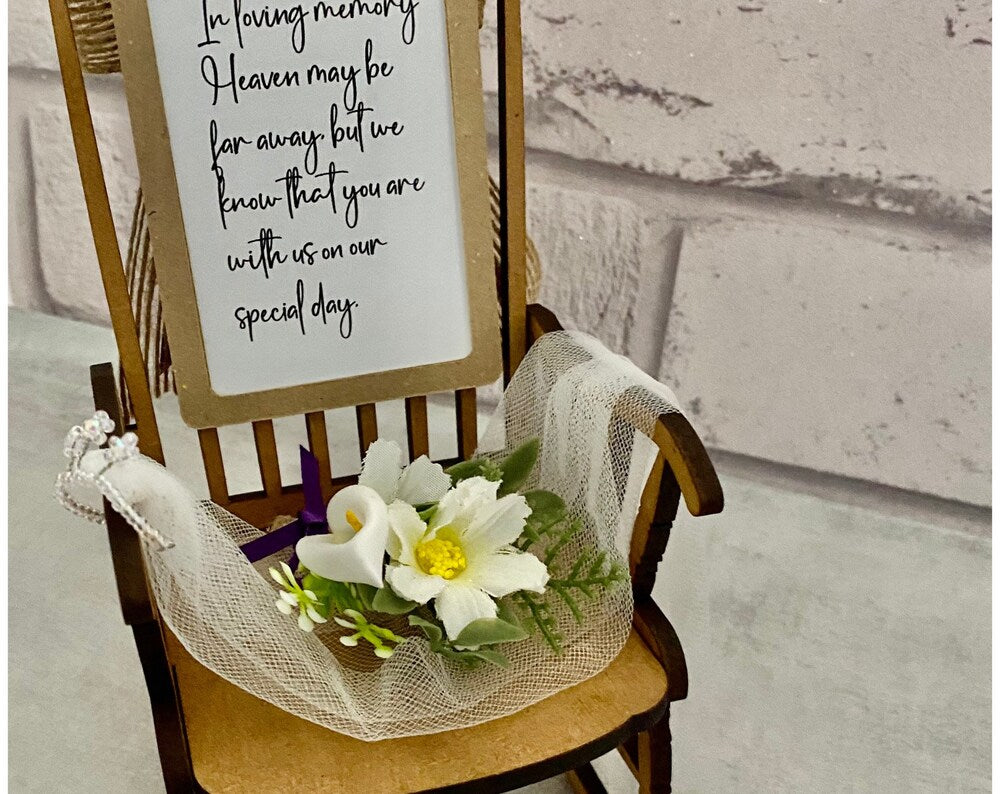 In loving memory
Heaven may be
far away, but we
know that you are
with us on our
special day.